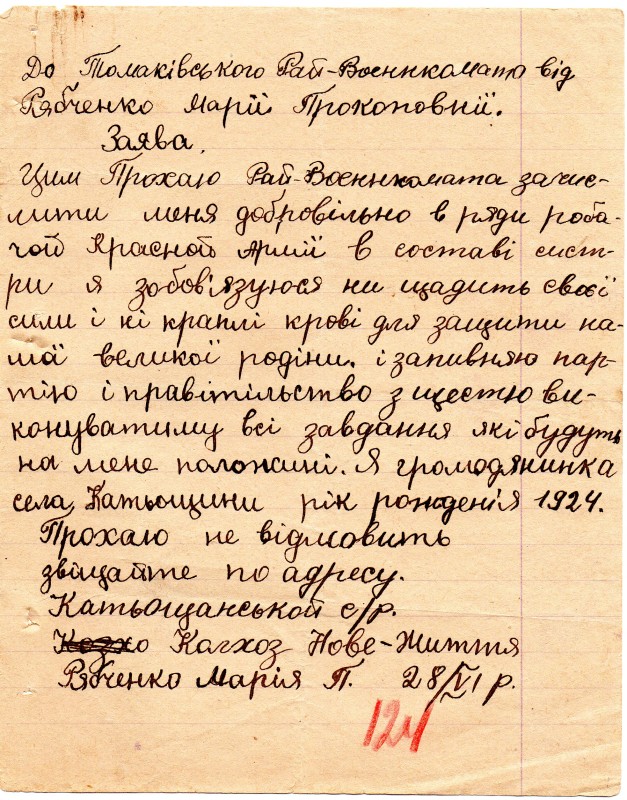 До Томаківського Рай-Воєннкомата від
Рябченко Марії Прокоповнії.
Заява.
Цим Прохаю Рай-Воєннкомата зачис-
лити меня добровільно в ряди роба-
чой Красной Армії в составі сист-
ри я зобов'язуюся ни щадить своєї
сили і кі краплі крові для защити на-
шої великої родіни. і запивняю пар-
тію і правітільство з щестю ви-
конуватиму всі завдання які будуть
на мене положині. Я громодянинка
села, Катьощини рік рожденія 1924.
Прохаю не відмовить
звіщайте по адресу.
Катьощанськой с/р.
Кагхоз Нове-Життя
Рябченко Марія П. 28/VI р.
124